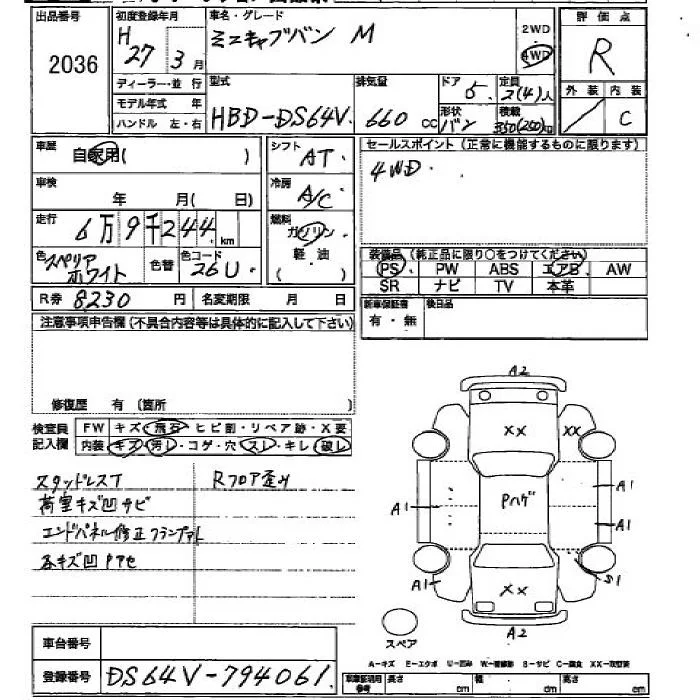 出品番号 初度登録年月 車名・グレード 評価点
2036 H 27年3月 ミニキャブバン M 2WD 4WD R
ディーラー・並行 型式 排気量 ドア 定員 外装 内装
モデル年式 年 HBD-DS64V 660cc 5 2(4)人 / C
ハンドル 左・右 形状 バン 積載 350(250)kg
車歴 自家用( ) シフト AT セールスポイント(正常に機能するものに限ります)
車検 年 月( 日) 冷房 A/C 4WD
走行 6万9千244km 燃料 ガソリン・軽油( )
色 スペリアホワイト 色替 色コード 26U 装備品(純正品に限り○をつけてください)
PS PW ABS エアB AW
SR ナビ TV 本革
R券 8230円 名変期限 月 日 新車保証書 有・無 後日品
注意事項申告欄(不具合内容等は具体的に記入して下さい)
修復歴 有(箇所 )
検査員記入欄 FW キズ・飛石・ヒビ割・リペア跡・X要
内装 キズ・汚し・コゲ・穴・スレ・キレ・破レ
スタッドレスT Rフロア歪み
荷室キズ凹サビ
エンドパネル修正
各キズ凹 Pアセ
A2
XX XX
A1 Pハゲ A1
A1
A1 XX S1
A2
スペア
A-キズ E-エクボ U-凹み W-補修跡 S-サビ C-腐食 XX-交換済
車台番号
登録番号 DS64V-794061
長さ cm 幅 cm 高さ cm